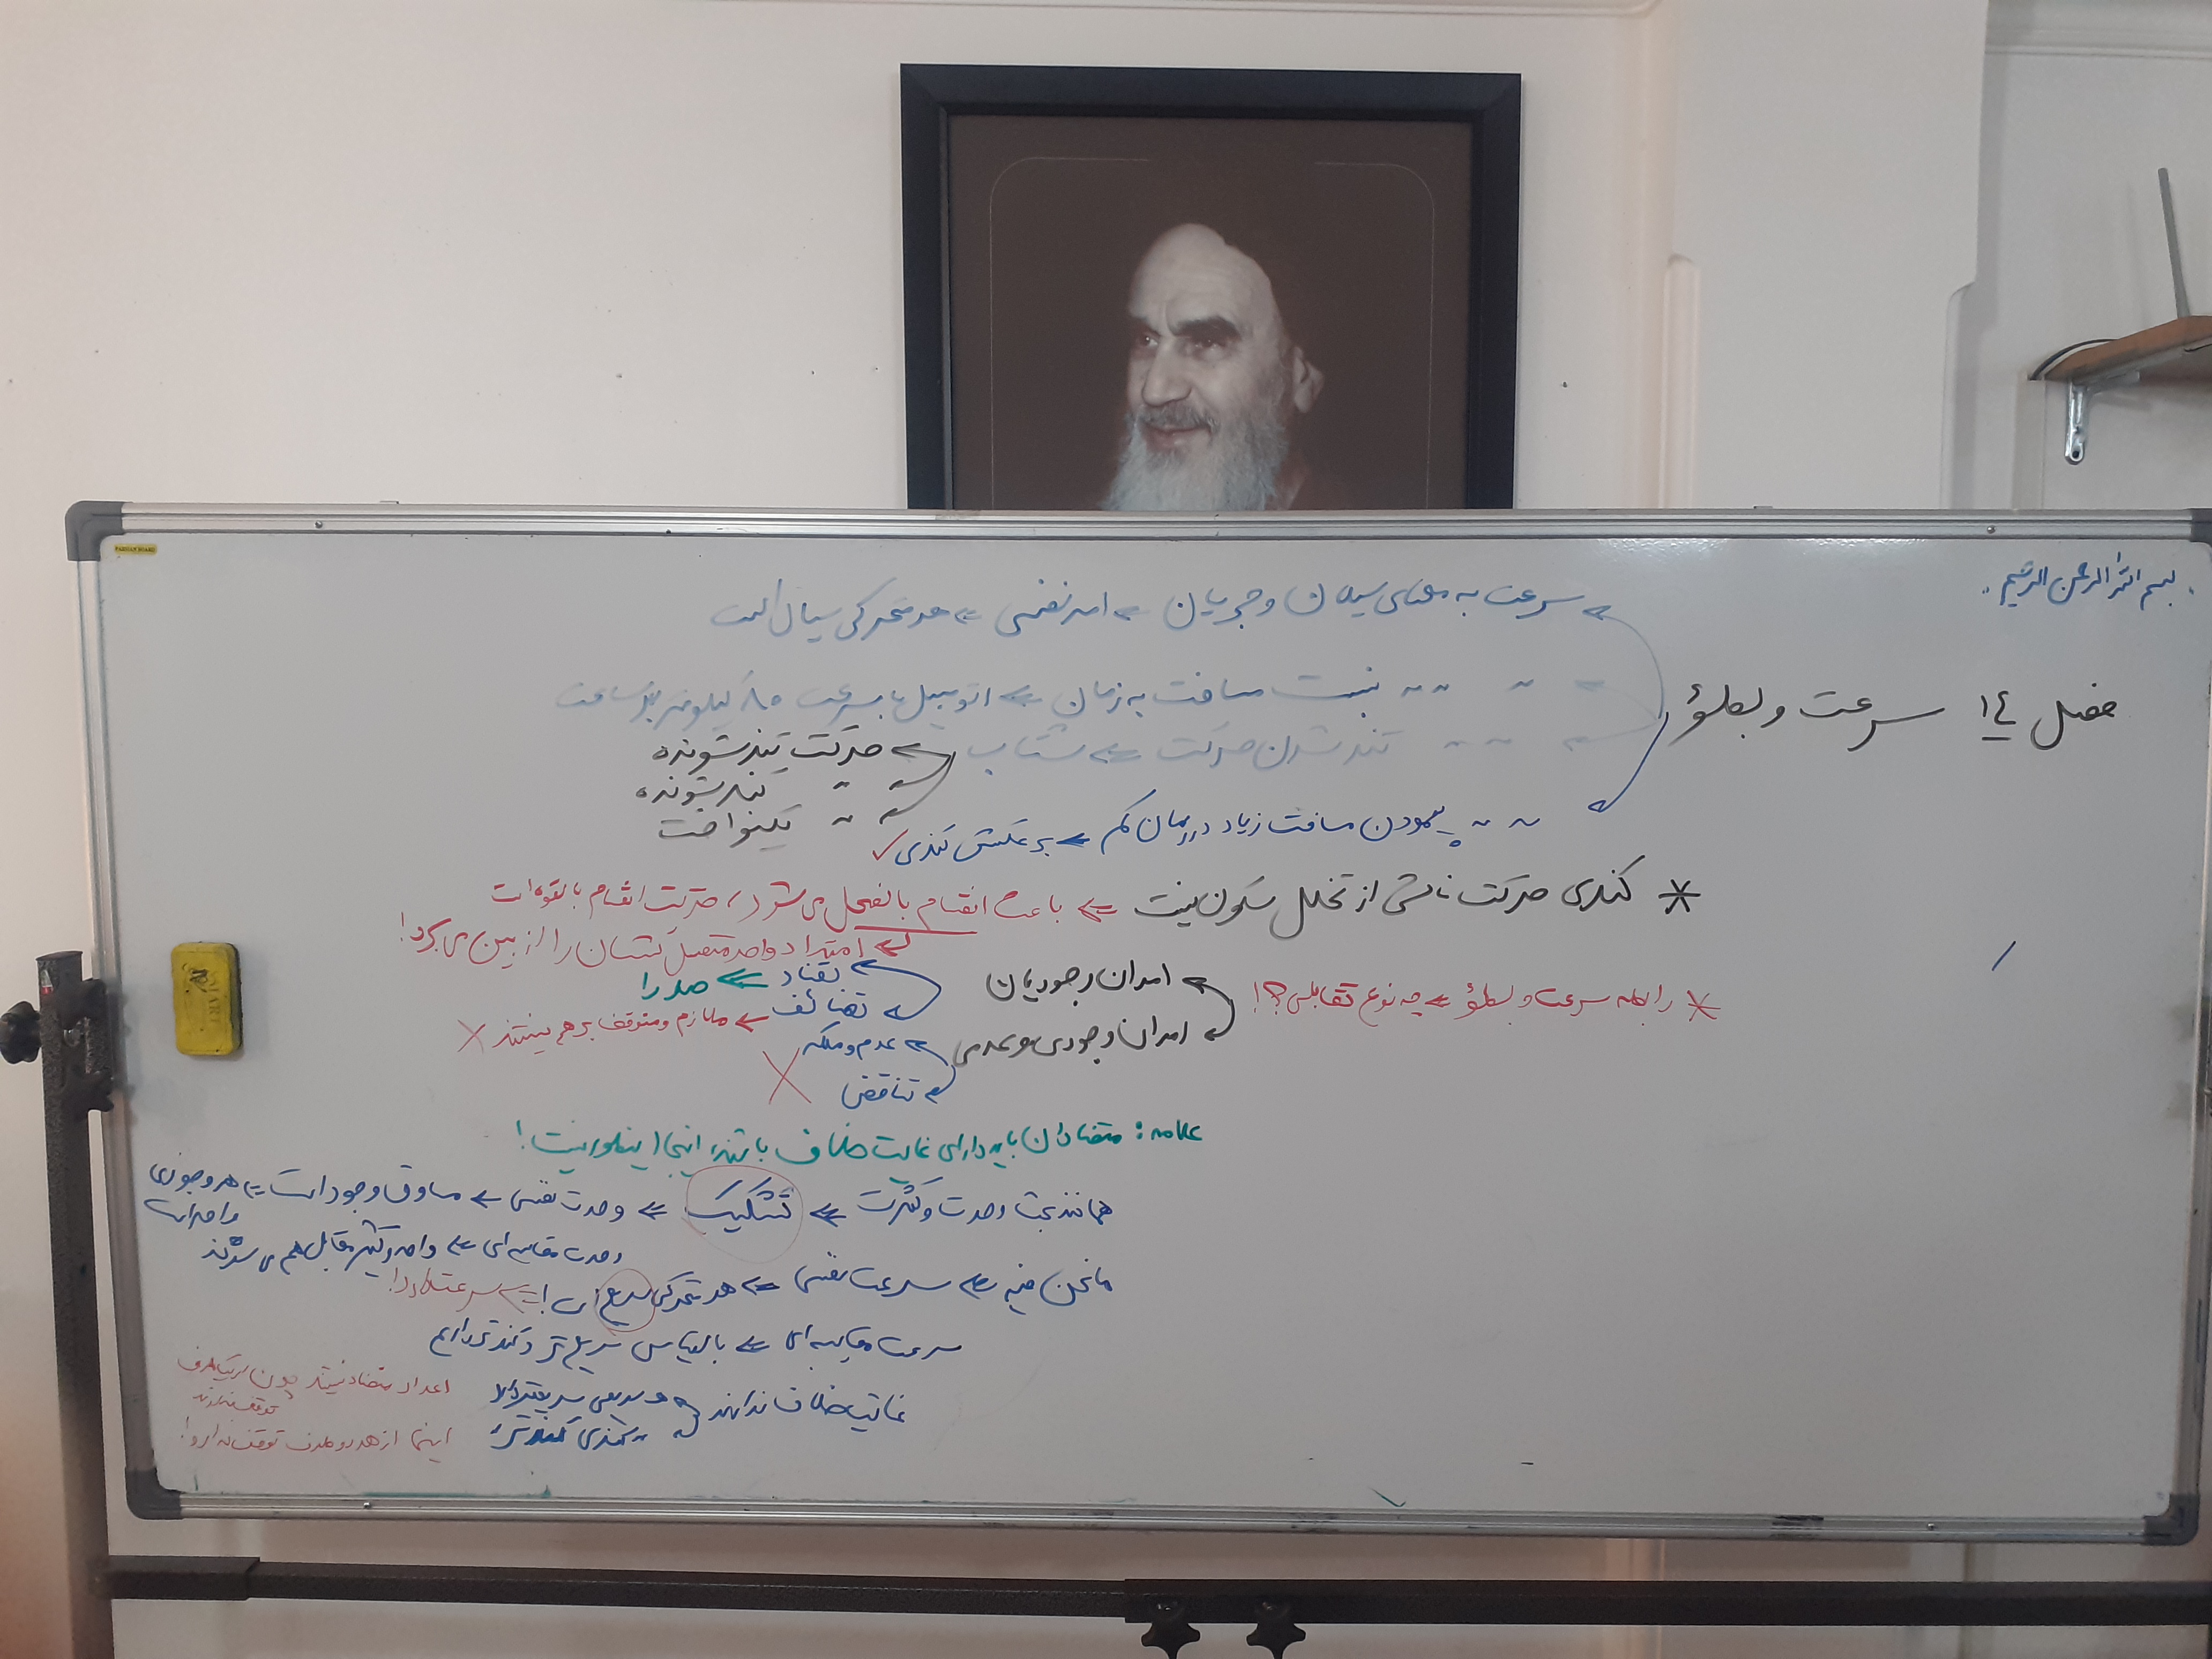 بسم الله الرحمن الرحیم
فصل ۱۴ سرعت و بطؤ
سرعت به معنای سیلان و جریان ⇐ امر نفسی ⇐ هر متحرکی سیال است
〃 〃 〃 نسبت مسافت به زمان ⇐ اتومبیل با سرعت ۸۰ کیلومتر بر ساعت
〃 〃 〃 تند شدن حرکت ⇐ شتاب
حرکت تندشونده
〃 کندشونده
〃 یکنواخت
〃 〃 〃 پیمودن مسافت زیاد در زمان کم ⇐ برعکس کندی ✓
* کندی حرکت ناشی از تخلل سکون نیست ⇐ باعث انقسام بالفعل می‌شود، حرکت انقسام بالقوه است
امتداد واحد متصل کشسان را از بین می‌برد!
* رابطه سرعت و بطؤ ⇐ چه نوع تقابلی؟!
امران وجودیان
تضاد ⇐ صدرا
تضائف ⇐ ملازم و متوقف بر هم نیستند ×
امران وجودی و عدمی
عدم و ملکه
تناقض
×
علامه: متضادان باید دارای غایت خلاف باشند، اینجا اینطور نیست!
همانند بحث وحدت و کثرت ⇐ تشکیک ⇐ وحدت نفسی ⇐ مساوق وجود است ⇐ هر وجودی واحد است
وحدت مقایسه‌ای ⇐ واحد و کثیر مقابل هم می‌شوند
مانحن فیه ⇐ سرعت نفسی ⇐ هر متحرکی سریع است! ⇐ سرعت دارد!
سرعت مقایسه‌ای ⇐ بالقیاس سریع‌تر و کندتر داریم
غایت خلاف ندارند
هر سریعی سریعتر دارد
〃 کندی کندتر
اعداد متضاد نیستند چون از یک طرف توقف ندارند
اینجا از هر دو طرف توقف ندارد!
PARHAN BOARD